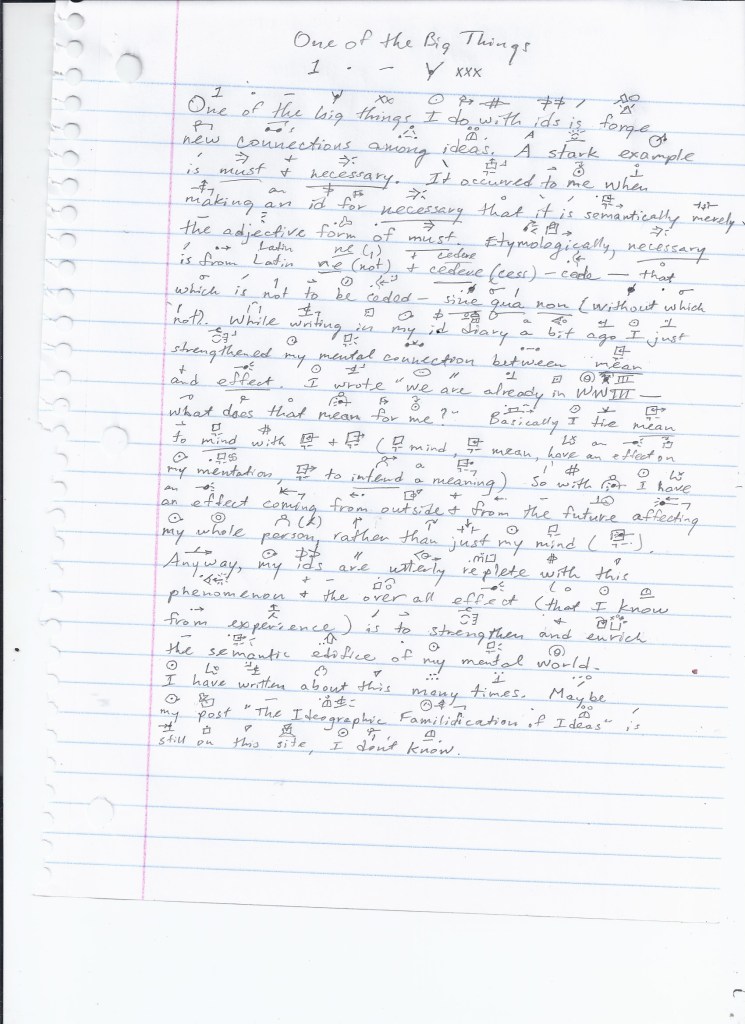 One of the Big Things
1 · – xxx
One of the big things I do with ids is forge
new connections among ideas. A stark example
is must + necessary. It occurred to me when
making an id for necessary that it is semantically merely
the adjective form of must. Etymologically, necessary
is from Latin ne (not) + cedere (cess) – cede – that
which is not to be ceded – sine qua non (without which
not). While writing in my id diary a bit ago I just
strengthened my mental connection between mean
and effect. I wrote "we are already in WWIII –
what does that mean for me?" Basically I the mean
to mind with + ( mind, mean, have an effect on
my mentation, to intend a meaning) So with I have
an effect coming from outside + from the future affecting
my whole person, rather than just my mind ( ).
Anyway, my ids are utterly replete with this
phenomenon + the over all effect (that I know
from experience) is to strengthen and enrich
the semantic edifice of my mental world.
I have written about this many times. Maybe
my post "The Ideographic Familidification of Ideas" is
still on this site, I don't know.